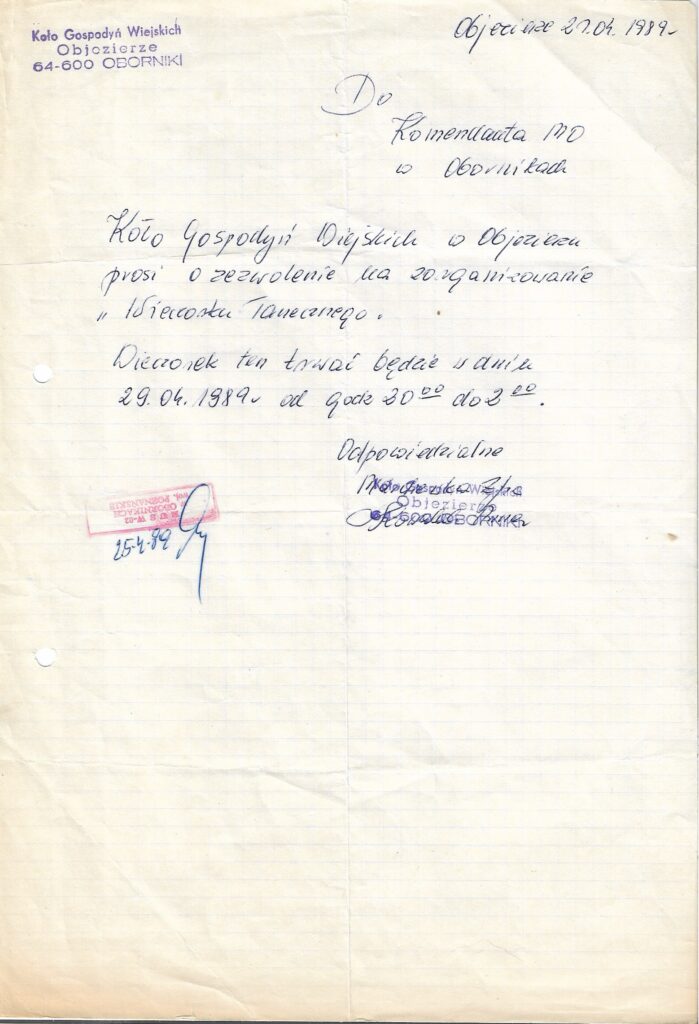 Koło Gospodyń Wiejskich
Objezierze
64-600 OBORNIKI
Objezierze 21.04. 1989r
Do
Komendanta MO
w Obornikach
Koło Gospodyń Wiejskich w Objezierzu
prosi o zezwolenie na zorganizowanie
„ Wieczorku Tanecznego.
Wieczorek ten trwać będzie w dniu
29.04.1989r od godz 20 00 do 2 00.
Odpowiedzialne
Koło Gospodyń Wiejskich
Objezierze
64-600 OBORNIKI
W OBORNIKACH
woj. POZNAŃSKIE
25-4-89